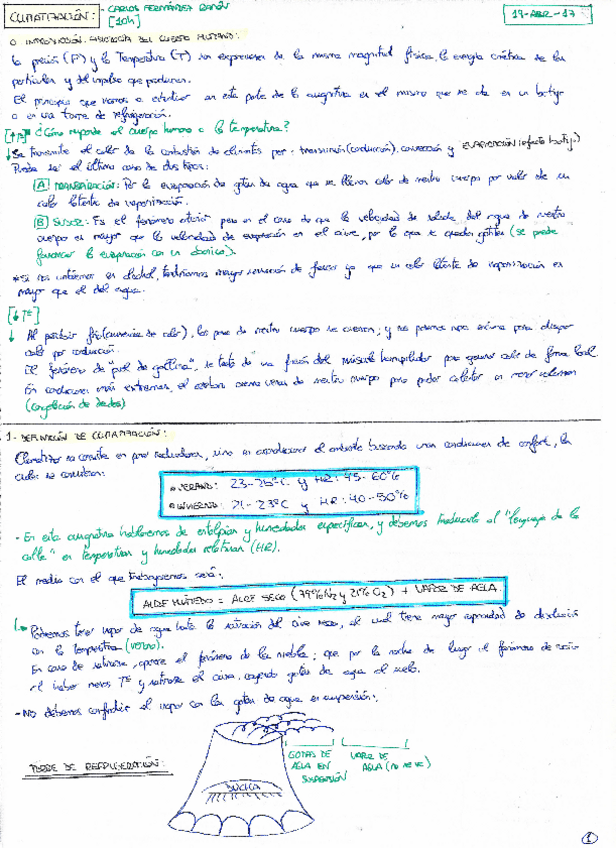 CLIMATIZACIÓN: - CARLOS FERNÁNDEZ RAMÓN 19-ABR-17
[10h]
0. INTRODUCCIÓN. FISIOLOGÍA DEL CUERPO HUMANO:
La presión (P) y la Temperatura (T) son expresiones de la misma magnitud física, la energía cinética de las
partículas y del impulso que producen.
El principio que vamos a estudiar en esta parte de la asignatura es el mismo que se da en un botijo
o en una torre de refrigeración.
[↑Tª] ¿Cómo responde el cuerpo humano a la temperatura?
↓ Se transmite el calor de la combustión de alimentos por: transmisión (conducción), convección y EVAPORACIÓN (efecto botijo)
Puede ser el último caso de dos tipos:
[A] TRANSPIRACIÓN: Por la evaporación de gotas de agua que se llevan calor de nuestro cuerpo por valor de su
calor latente de vaporización.
[B] SUDOR: Es el fenómeno anterior pero en el caso de que la velocidad de salida del agua de nuestro
cuerpo es mayor que la velocidad de evaporación en el aire, por lo que se quedan gotitas (se puede
favorecer la evaporación con un abanico).
* Si nos untásemos en alcohol, tendríamos mayor sensación de frescor ya que su calor latente de vaporización es
mayor que el del agua.
[↓Tª]
↓ Al percibir frío (ausencia de calor), los poros de nuestro cuerpo se cierran; y nos ponemos para disipar
calor por conducción.
El fenómeno de "piel de gallina", se trata de una fricción del músculo horripilador para generar calor de forma local.
En condiciones más extremas, el cerebro cierra venas de nuestro cuerpo para poder calentar un menor volumen
(congelación de dedos)
1.- DEFINICIÓN DE CLIMATIZACIÓN:
Climatizar no consiste en poner radiadores, sino en acondicionar el ambiente buscando unas condiciones de confort, las
cuales se consideran:
• VERANO: 23-25ºC y HR: 45-60%
• INVIERNO: 21-23ºC y HR: 40-50%
- En esta asignatura hablaremos de entalpías y humedades específicas, y debemos traducirlo al "lenguaje de la
calle" en temperaturas y humedades relativas (HR).
El medio con el que trabajaremos será:
AIRE HÚMEDO = AIRE SECO (79%N₂ y 21%O₂) + VAPOR DE AGUA.
Podemos tener vapor de agua hasta la saturación del aire seco, el cual tiene mayor capacidad de disolución
con la temperatura (verano).
En caso de saturarse, aparece el fenómeno de la niebla; que por la noche da lugar al fenómeno de rocío
al haber menos Tª y saturarse el aire, cayendo gotas de agua al suelo.
- No debemos confundir el vapor con las gotas de agua en suspensión:
TORRE DE REFRIGERACIÓN:
GOTAS DE
AGUA EN
SUSPENSIÓN
VAPOR DE
AGUA (NO SE VE)
DUCHA
1